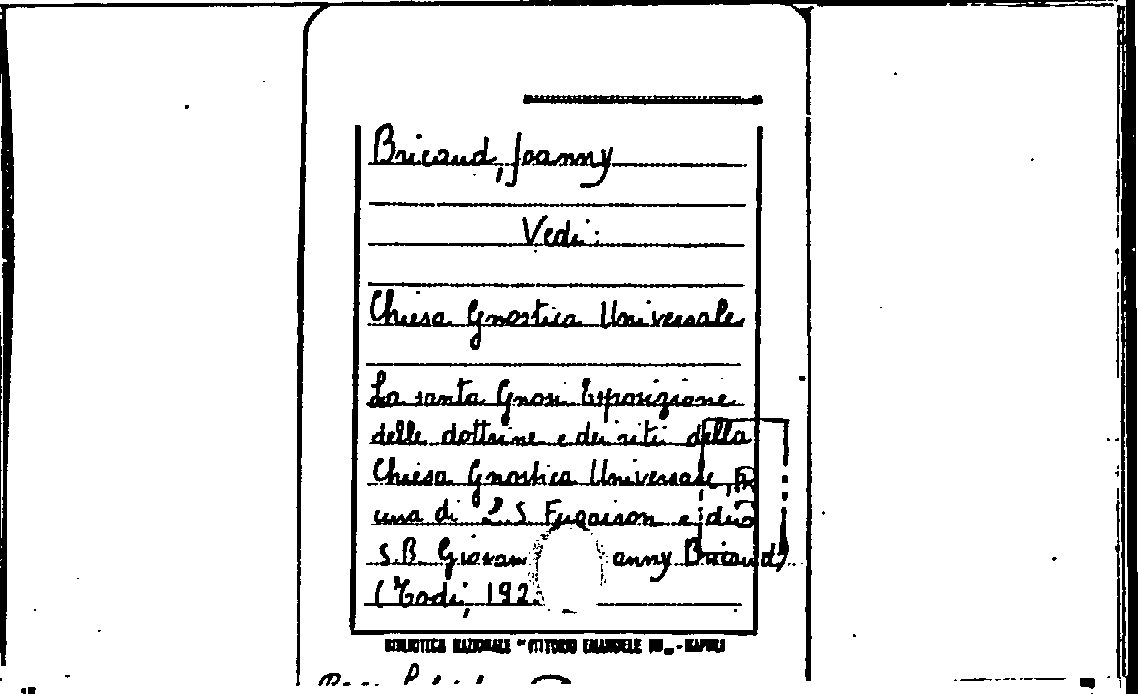 Bricaud, Joanny
Vedi:
Chiesa Gnostica Universale
La santa Gnosi Esposizione
delle dottrine e dei riti della
Chiesa Gnostica Universale, a
cura di S. Fugairon e di
S.B. Giovan anny Bricaud
(Todi, 192
BIBLIOTECA NAZIONALE "VITTORIO EMANUELE III" - NAPOLI